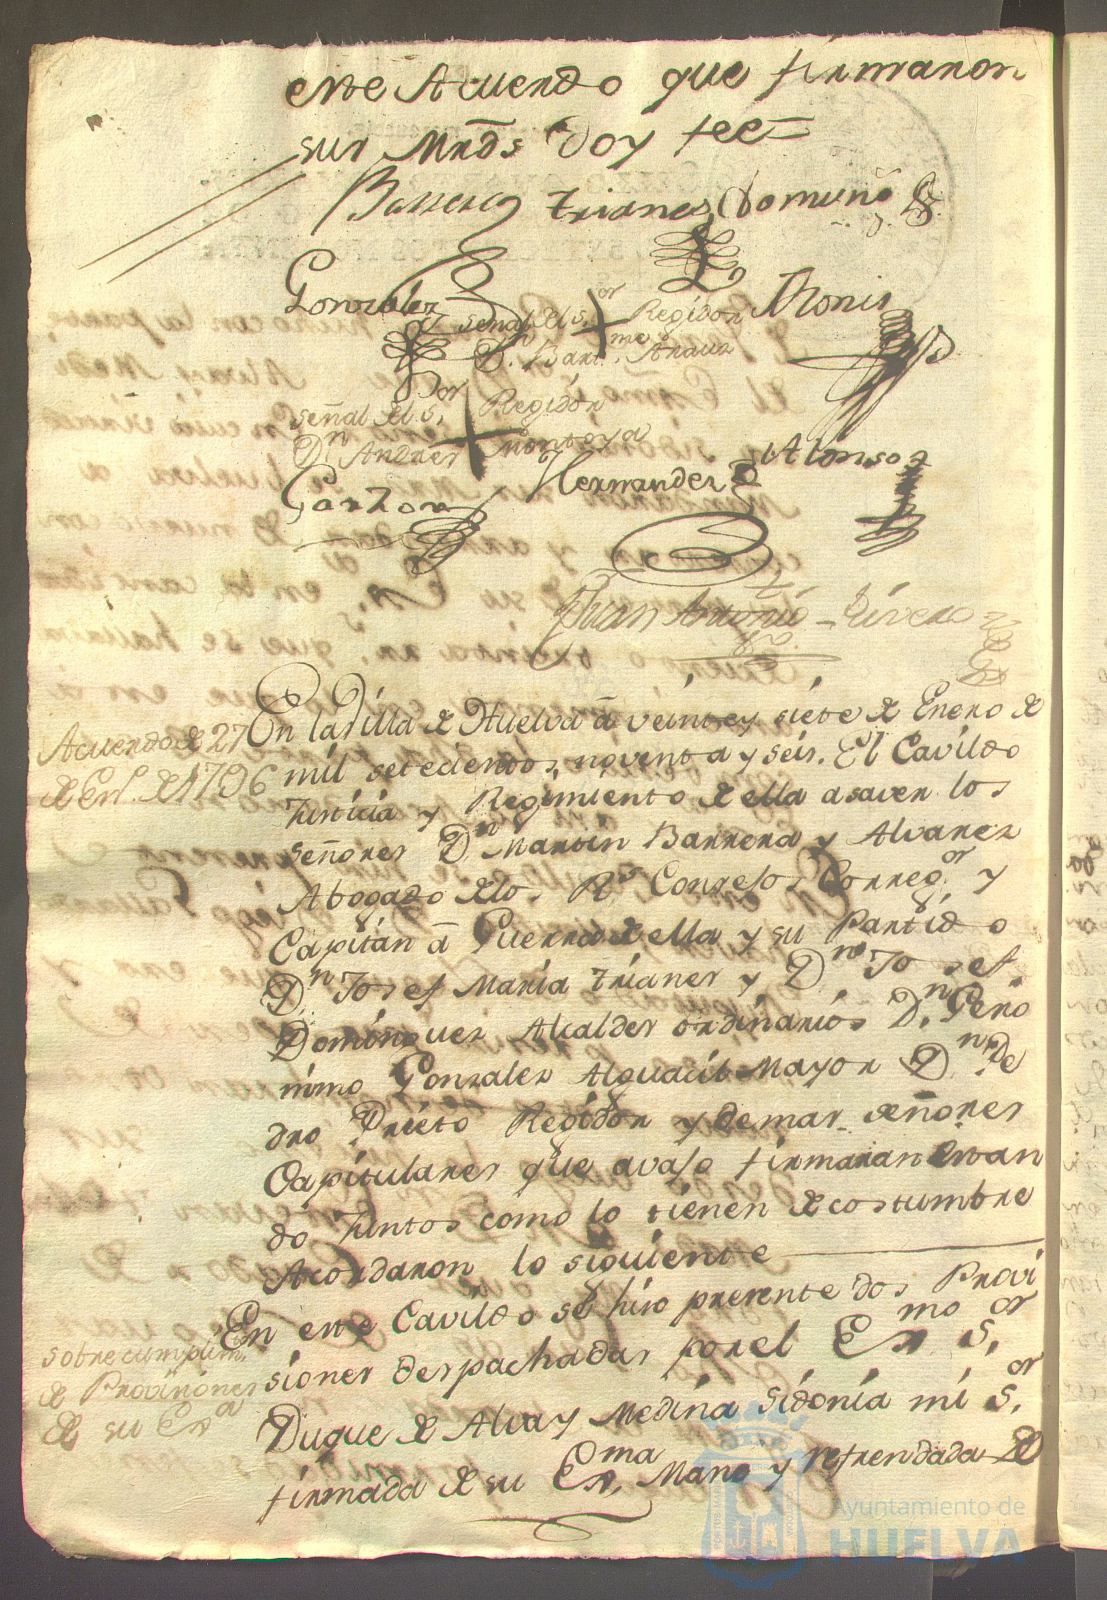 este Acuerdo que firmaron
sus Mrds doy fee=
Barrera Trianes Doming.
Gonzalez
señal del s.or Regidor
Dn. Bart.me Arauz
Thonis
señal del s.or Regidor
Dn Andres Montoya
Garzon
Hernandez
Alonso
Juan Antonio Rivero
Acuerdo de 27
de En.o de 1796
En la Villa de Huelva â veinte y siete de Enero de
mil setecientos, noventa y seis. El Cavildo
Justicia y Regimiento de ella a saver los
señores Dn. Martin Barrera y Alvarez
Abogado de los Rs Consejos Correg.or y
Capitan â Guerra de ella y su Partido
Dn. Josef Maria Trianes y Dn. Josef
Dominguez Alcaldes ordinarios Dn. Gero
nimo Gonzalez Alguacil Mayor Dn. Pe
dro Prieto Regidor y demas señores
Capitulares que avajo firmaran estan
do Juntos como lo tienen de costumbre
Acordaron lo siguiente
sobre cumplim.
de Provisiones
de su Exa
En este Cavildo se hizo presente dos Provi
siones despachadas por el Exmo s.or
Duque de Alva y Medina Sidonia mi s.or
firmada de su Exma Mano y refrendada de
Ayuntamiento de
HUELVA